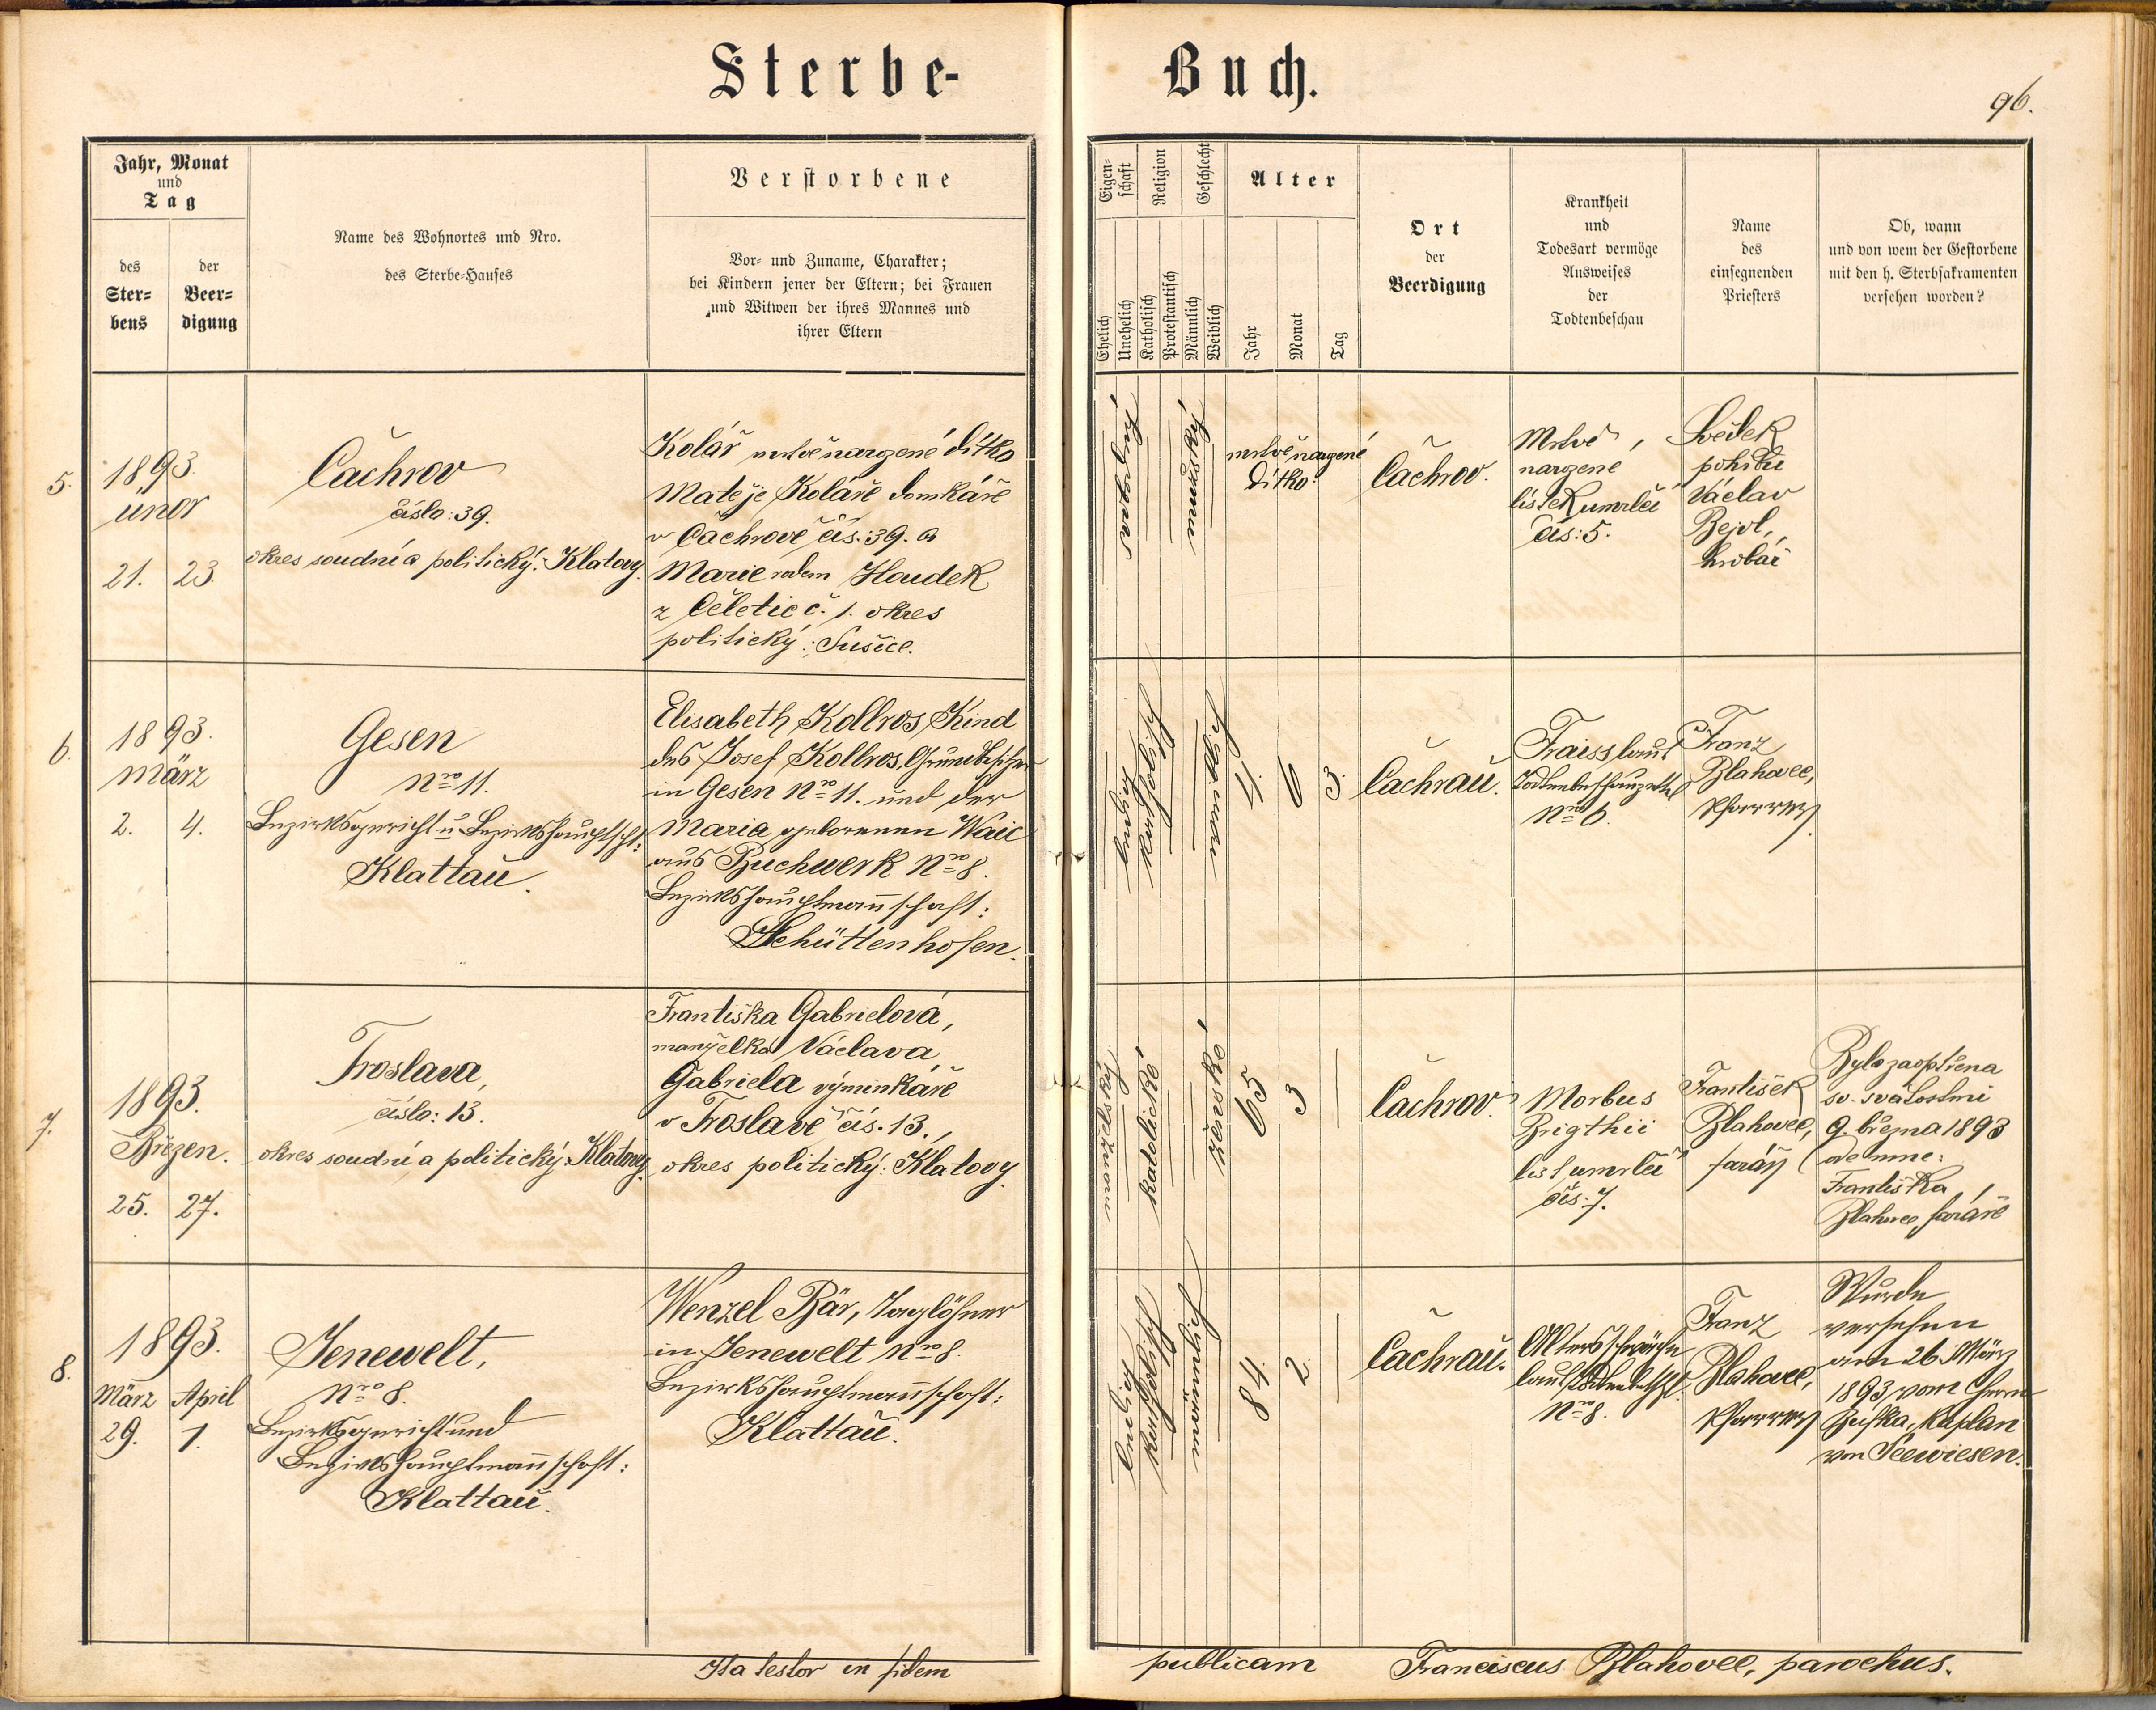 Sterbe-
Buch.
96.
Jahr, Monat
und
Tag
des
Ster=
bens
der
Beer=
digung
Name des Wohnortes und Nro.
des Sterbe-Hauses
Verstorbene
Vor- und Zuname, Charakter;
bei Kindern jener der Eltern; bei Frauen
und Witwen der ihres Mannes und
ihrer Eltern
Eigen-
schaft
Ehelich
Unehelich
Religion
Katholisch
Protestantisch
Geschlecht
Männlich
Weiblich
Alter
Jahr
Monat
Tag
Ort
der
Beerdigung
Krankheit
und
Todesart vermöge
Ausweises
der
Todtenbeschau
Name
des
einsegnenden
Priesters
Ob, wann
und von wem der Gestorbene
mit den h. Sterbsakramenten
versehen worden?
5.
1893.
únor
21. 23.
Čachrov
číslo: 39.
okres soudní a politický: Klatovy.
Kolář mrtvě narozené dítko
Matěje Koláře domkáře
v Čachrově čís: 39. a
Marie rodem Houdek
z Čeletic č. 1. okres
politický: Sušice.
mrtvě narozené
dítko.
Čachrov.
Mrtvě
narozené
lístek umrlčí
čís: 5.
Svědek
pohřbu
Václav
Bejvl,
hrobař
6.
1893.
März
2. 4.
Gesen
Nro 11.
Bezirksgericht u Bezirkshauptscht:
Klattau.
Elisabeth Kollros, Kind
des Josef Kollros, Grundbesitzer
in Gesen Nro 11. und der
Maria geborenen Waic
aus Buchwerk Nro 8.
Bezirkshauptmannschaft:
Schüttenhofen.
ehelich
katholisch
4. 6 3.
Čachrau.
Fraiss laut
Todtenbeschauzettel
Nro 6.
Franz
Blahovec,
Pfarrer
7.
1893.
Březen.
25. 27.
Froslava,
číslo: 13.
okres soudní a politický Klatovy.
Františka Gabrielová,
manželka Václava
Gabriela výminkáře
v Froslavě čís. 13.,
okres politický: Klatovy.
manželské
katolické
ženské
65 3 —
Čachrov.
Morbus
Brigthii
list umrlčí
čís. 7.
František
Blahovec,
farář
Byla zaopatřena
sv. svátostmi
9. března 1893
ode mne:
Františka
Blahovce, faráře
8.
1893.
März April
29. 1.
Jenewelt,
Nro 8.
Bezirksgericht und
Bezirkshauptmannschaft:
Klattau.
Wenzel Bär, Taglöhner
in Jenewelt Nro 8.
Bezirkshauptmannschaft:
Klattau.
ehelich
katholisch
männlich
84. 2. —
Čachrau.
Altersschwäche
laut Todtenbschzt.
Nro 8.
Franz
Blahovec,
Pfarrer
Wurde
versehen
am 26. März
1893 vom Herrn
Kaplan
von Seewiesen.
Ita testor in fidem
publicam Franciscus Blahovec, parochus.